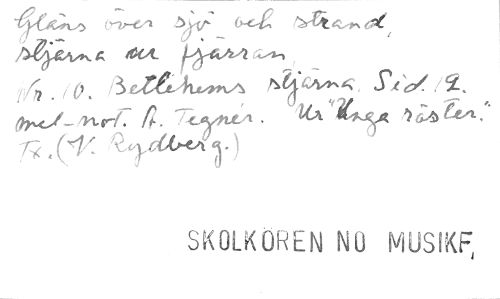 Gläns över sjö och strand,
stjärna ur fjärran,
Nr. 10. Betlehems stjärna. Sid. 12.
mel-not. A. Tegnér. Ur "Unga röster."
Tx. (V. Rydberg.)
SKOLKÖREN NO MUSIKF,